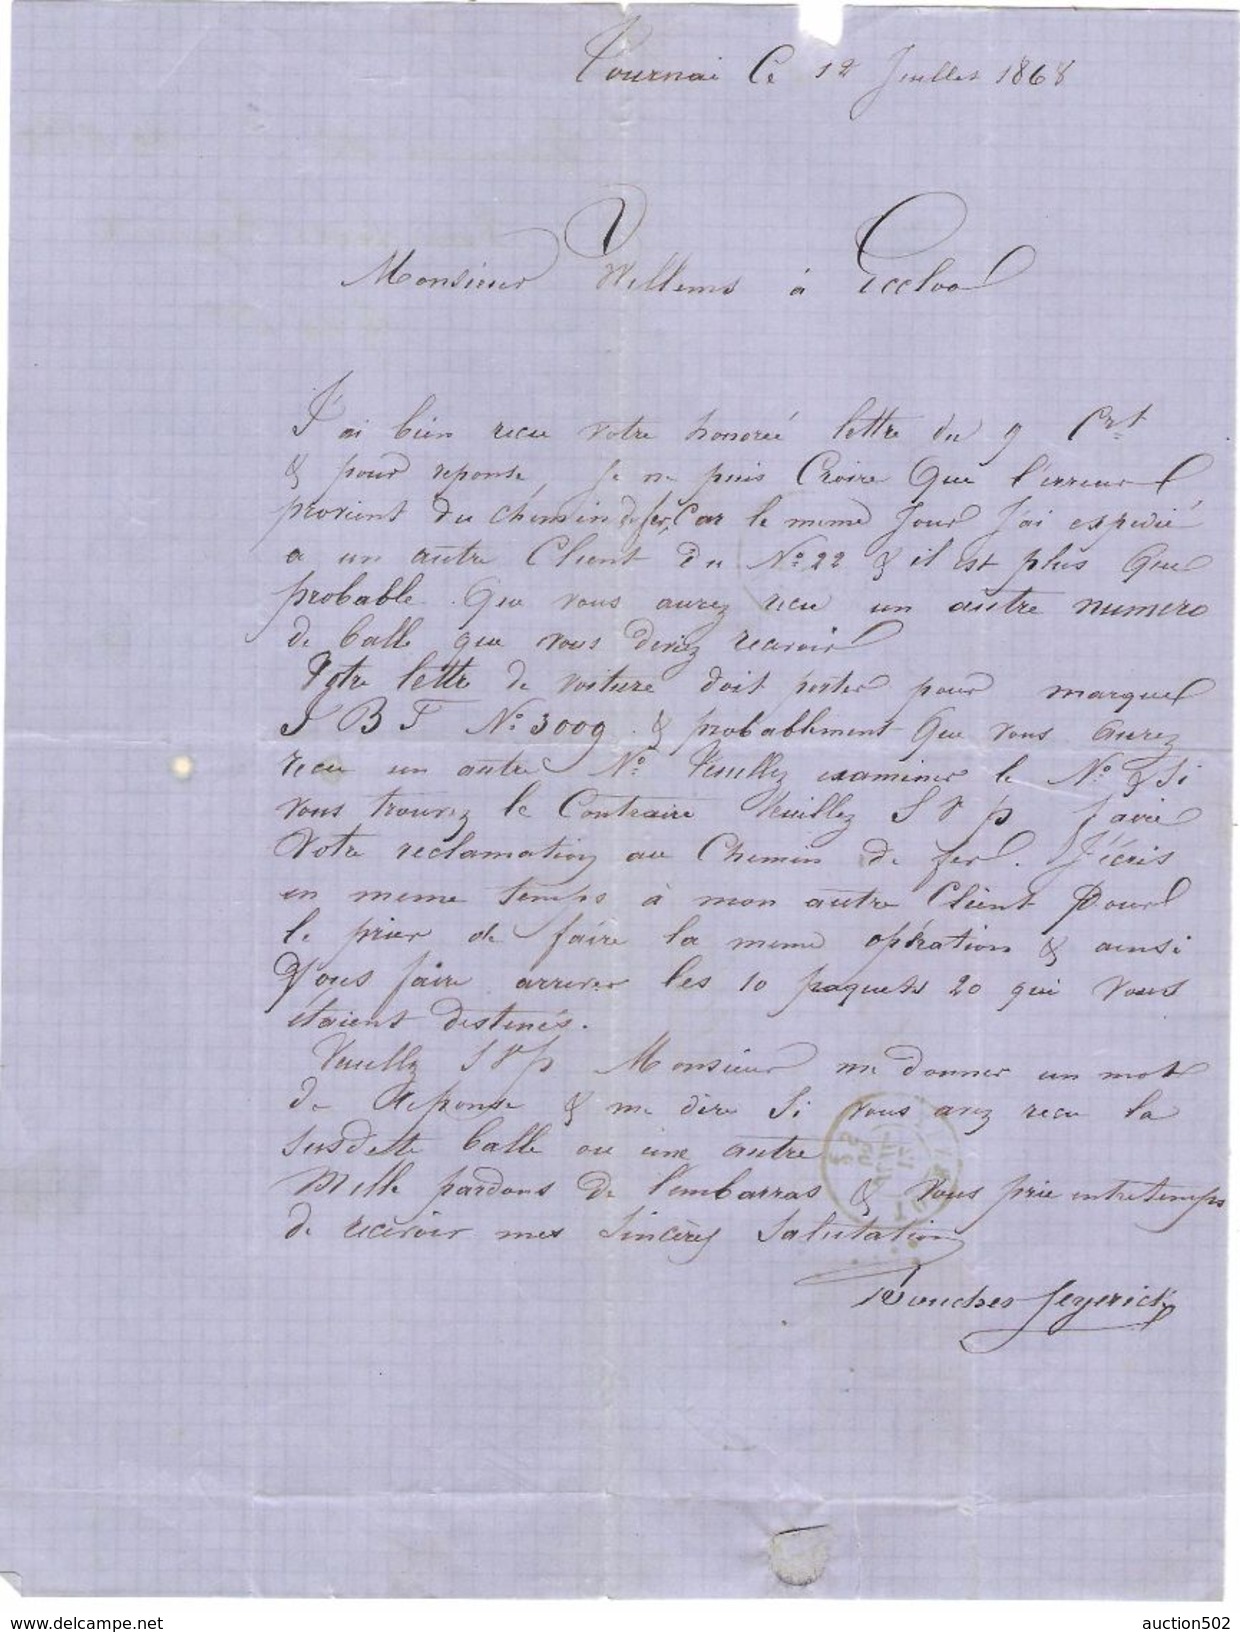 Tournai Ce 12 Juillet 1868
Monsieur Willems à Eecloo
J'ai bien recu votre honorée lettre du 9 Crt
& pour reponse, Je ne puis Croire Que l'erreur
provient du chemin de fer, Car le meme Jour J'ai expedié
a un autre Client du No 22 & il est plus Que
probable Que vous aurez recu un autre numero
de balle que vous deviez recevoir
Votre lettre de voiture doit porter pour marque
J B F No 3009. & probablement Que vous aurez
recu un autre No Veuillez examiner le No & Si
vous trouvez le Contraire Veuillez S V p faire
Votre reclamation au Chemin de fer. J'écris
en meme temps à mon autre Client Pour
le prier de faire la meme opération & ainsi
Vous faire arriver les 10 paquets 20 qui vous
étaient destinés.
Veuillez S V p Monsieur me donner un mot
de Reponse & me dire Si vous avez recu la
susdette balle ou une autre
Mille pardons de l'embarras & vous prie entretemps
de recevoir mes Sincères Salutation
delcampe.net
auction502